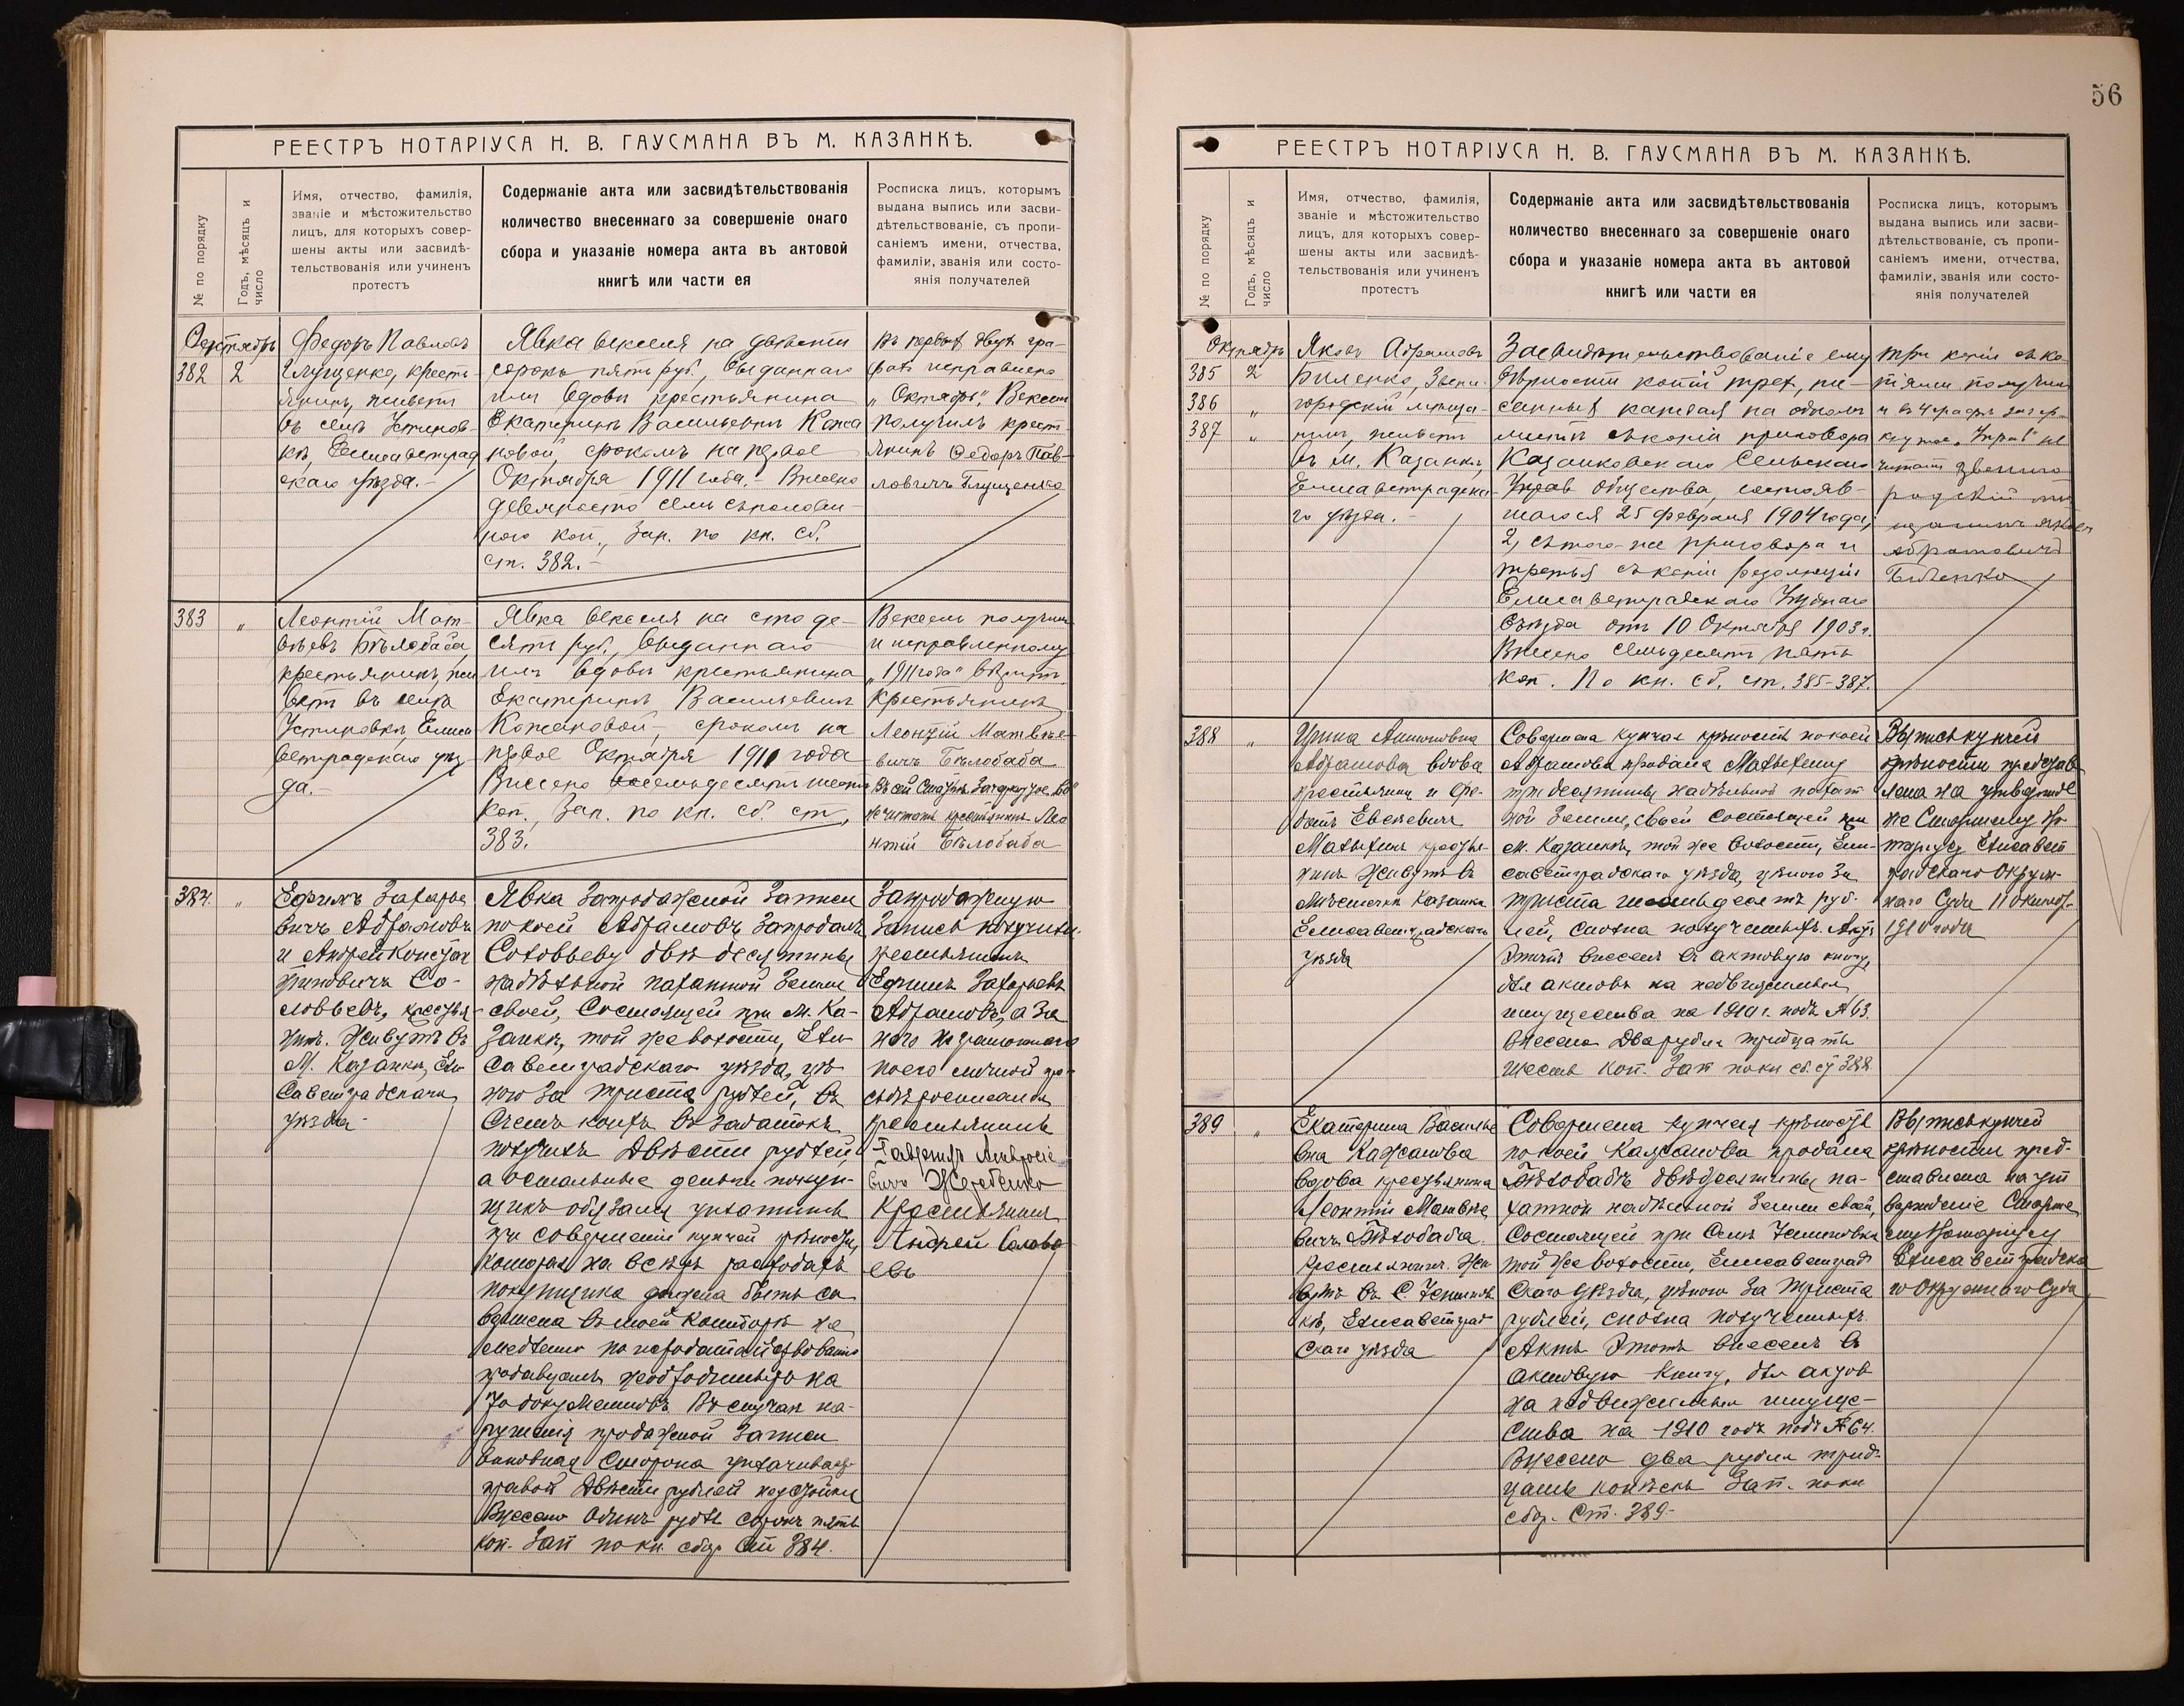 РЕЕСТРЪ НОТАРІУСА Н. В. ГАУСМАНА ВЪ М. КАЗАНКѢ.
№ по порядку
Годъ, мѣсяцъ и
число
Имя, отчество, фамилія,
званіе и мѣстожительство
лицъ, для которыхъ совер-
шены акты или засвидѣ-
тельствованія или учиненъ
протестъ
Содержаніе акта или засвидѣтельствованія
количество внесеннаго за совершеніе онаго
сбора и указаніе номера акта въ актовой
книгѣ или части ея
Росписка лицъ, которымъ
выдана выпись или засви-
дѣтельствованіе, съ пропи-
саніемъ имени, отчества,
фамиліи, званія или состо-
янія получателей
382
2
Федоръ Павловъ
Глущенко, кресть-
янинъ, живетъ
въ селѣ Устинов-
кѣ, Елисаветград
скаго уѣзда.-
Явка векселя на двѣсти
сорокъ пять руб., выданнаго
имъ вдовѣ крестьянина
Екатеринѣ Васильевнѣ Кожа
новой, срокомъ на первое
Октября 1911 года.- Внесено
девяносто семь съ полови-
ною коп., Зап. по кн. сб.
ст. 382.-
Въ первыхъ двухъ гра-
фахъ исправлено
„Октябрь". Вексель
получилъ крест-
янинъ Федоръ Пав-
ловичъ Глущенко
383
„
Леонтій Мат-
вѣевъ Бѣлобаба,
крестьянинъ, жи
ветъ въ селѣ
Устиновкѣ, Елиса
ветградскаго уѣз
да.-
Явка векселя на сто де-
сять руб., выданнаго
имъ вдовѣ крестьянина
Екатеринѣ Васильевнѣ
Кожановой, срокомъ на
первое Октября 1911 года
Внесено восемьдесятъ шесть
коп., Зап. по кн. сб. ст,
383.
Вексель получилъ
и исправленному
„1911 года" вѣрить.
Крестьянинъ
Леонтій Матвѣе-
вичъ Бѣлобаба
не читать крестьянинъ Лео
нтій Бѣлобаба
384.
„
Ефимъ Захарье
вичъ Абрамовъ
и Андрей Констан
тиновичъ Со-
ловьевъ, крестья
нинъ. Живутъ въ
М. Казанкѣ, Ели
саветградскаго
уѣзда
Явка Запродажной Записи
по коей Абрамовъ Запродалъ
Соловьеву двѣ десятины
надѣльной пахатной Земли
своей, Состоящей при М. Ка-
занкѣ, той же волости, Ели
саветградскаго уѣзда, цѣ
ною за триста рублей, въ
Счетъ коихъ въ задатокъ
получилъ Двѣсти рублей,
а остальные деньги покуп-
щикъ обязанъ уплатить
при совершеніи купчей крѣпости,
которая на всѣхъ расходахъ
покупщика должна быть со
вершена въ моей Конторѣ не
медленно по исходатайствованіи
продавцемъ необходимыхъ на
то документовъ. Въ случаѣ на-
рушенія продажной Записи
виновная Сторона уплачиваетъ
правой Двѣсти рублей неустойки
Внесено Одинъ рубль сорокъ пять
коп. Зап по кн. сбор Ст 384.
Запродажную
Запись получили
крестьянинъ
Ефимъ Захарьевъ
Абрамовъ, а За
него неграмотнаго
по его личной про
сьбѣ росписался
крестьянинъ
Гавріилъ Амвросіе
вичъ Жеребенко
Крестьянинъ
Андрей Соловь
евъ
56
РЕЕСТРЪ НОТАРІУСА Н. В. ГАУСМАНА ВЪ М. КАЗАНКѢ.
№ по порядку
Годъ, мѣсяцъ и
число
Имя, отчество, фамилія,
званіе и мѣстожительство
лицъ, для которыхъ совер-
шены акты или засвидѣ-
тельствованія или учиненъ
протестъ
Содержаніе акта или засвидѣтельствованія
количество внесеннаго за совершеніе онаго
сбора и указаніе номера акта въ актовой
книгѣ или части ея
Росписка лицъ, которымъ
выдана выпись или засви-
дѣтельствованіе, съ пропи-
саніемъ имени, отчества,
фамиліи, званія или состо-
янія получателей
Октябрь
385
2
386
„
387
„
Яковъ Абрамовъ
Биленко, Звени-
городскій мѣща-
нинъ, живетъ
въ м. Казанкѣ,
Елисаветградска-
го уѣзда.-
Засвидѣтельствованіе ему
вѣрности копій трехъ, пи-
санныхъ каждая на одномъ
листѣ съ копіи приговора
Казанковскаго Сельскаго
Управ общества, состояв-
шагося 25 Февраля 1904 года,
2, съ того-же приговора и
третья съ копіи резолюціи
Елисаветградскаго Уѣзднаго
Съѣзда отъ 10 Октября 1903 г.
Внесено семьдесятъ пять
коп. По кн. сб. ст. 385-387.
три копіи съ ко-
піями получилъ
и въ 4 графѣ зачер-
кнутое „Управ" не
читать Звениго
родскій мѣ
щанинъ Яковъ
Абрамовичъ
Биленко
388
„
Ирина Антоновна
Абрамова вдова
крестьянина и Фе-
Матыхинъ крестья-
нинъ Живутъ въ
Мѣстечкѣ Казанкѣ
Елисаветградскаго
уѣзда
Совершена купчая крѣпость по коей
Абрамова продала Матыхину
три десятины надѣльной пахат
ной Земли, своей Состоящей при
м. Казанкѣ, той же волости, Ели-
саветградскаго уѣзда, цѣною за
триста шестьдесятъ руб-
лей, сполна полученныхъ. Актъ
этотъ внесенъ въ актовую книгу,
для актовъ на недвижимыя
имущества на 1910 г. подъ № 63.
Внесено Два рубля тридцать
шесть коп. Зап по кн сб. ст 388
Выпись купчей
крѣпости представ
лена на утвержде
ніе Старшему Но-
таріусу Елисавет
градскаго Окруж-
наго Суда 11 Октяб.
1910 года
389
„
Екатерина Василье
вна Кажанова
вдова крестьянина
Леонтій Матвѣе
вичъ Бѣлобаба
крестьянинъ. Жи-
вутъ въ С. Устинов
кѣ, Елисаветград
скаго уѣзда
Совершена купчая крѣпость
по коей Кажанова продала
Бѣлобабѣ двѣ десятины па-
хатной надѣльной Земли своей,
Состоящей при Селѣ Устиновкѣ
той же волости, Елисаветград
скаго уѣзда, цѣною За триста
рублей, сполна полученныхъ.
Актъ Этотъ внесенъ въ
актовую книгу, для актов
на недвижимыя имуще-
ства на 1910 годъ подъ № 64.
Внесено два рубля трид-
цать копѣекъ Зап. по кн
сбор. Ст. 389-
Выпись купчей
крѣпости пред-
ставлена на ут
вержденіе Старше
му Нотаріусу
Елисаветградска
го Окружнаго Суда